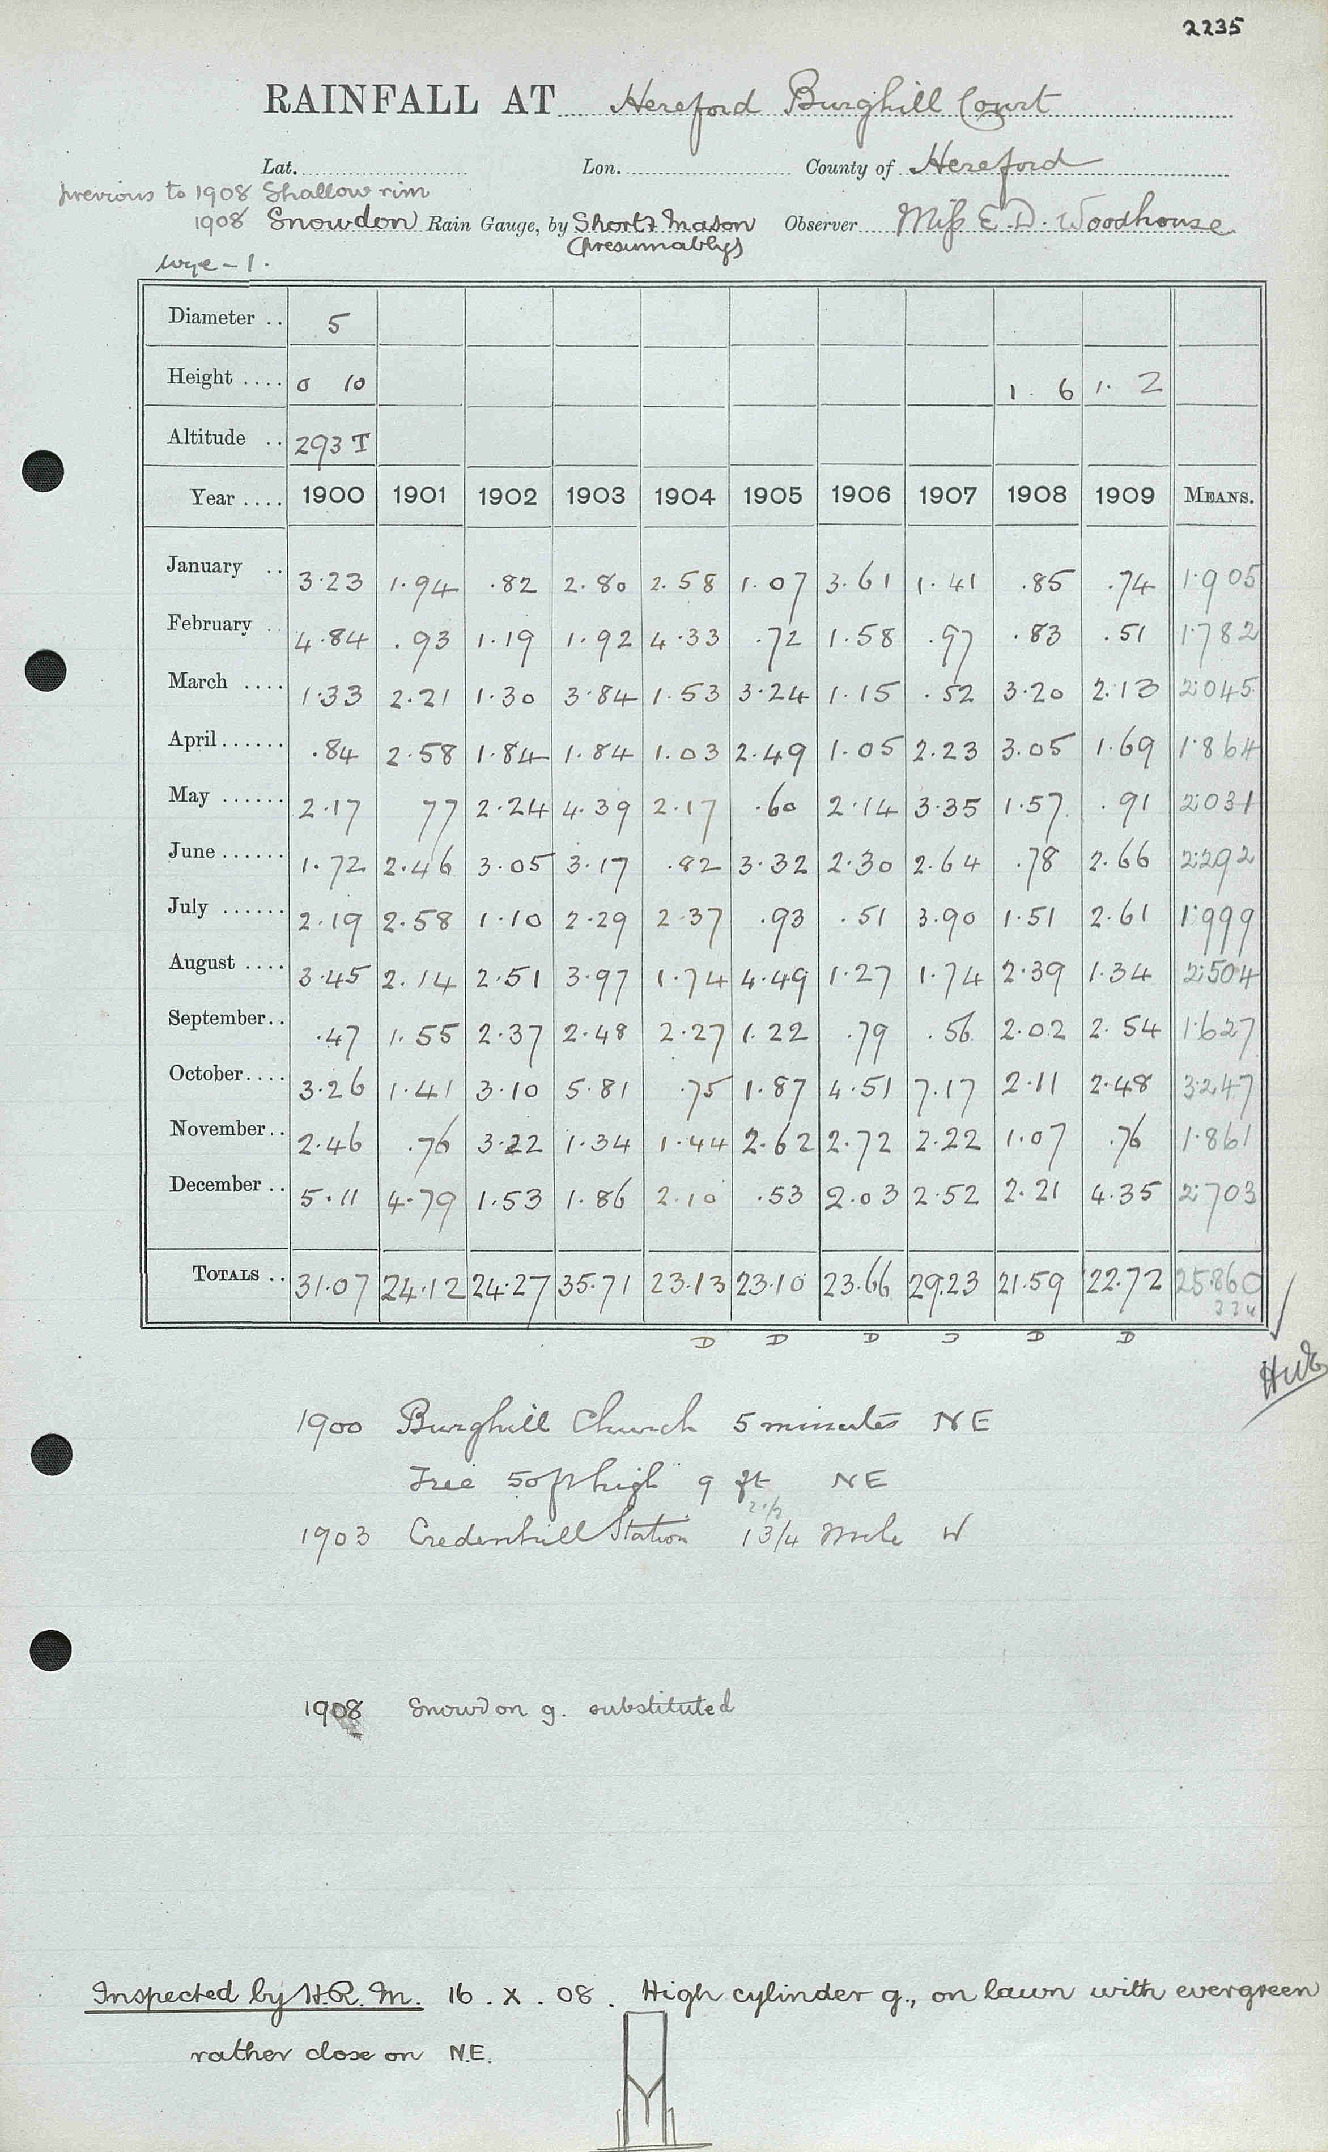 2235
RAINFALL AT Hereford Burghill Court
Lat. Lon. County of Hereford
previous to 1908 Shallow rim
1908 Snowdon Rain Gauge, by Short & Mason Observer Miss E. D. Woodhouse
(presumably)
Wye - 1.
Diameter .. 5
Height .... 0 10 1. 6 1. 2
Altitude .. 293 T
Year .... 1900 1901 1902 1903 1904 1905 1906 1907 1908 1909 MEANS.
January .. 3.23 1.94 .82 2.80 2.58 1.07 3.61 1.41 .85 .74 1.905
February .. 4.84 .93 1.19 1.92 4.33 .72 1.58 .97 .83 .51 1.782
March .... 1.33 2.21 1.30 3.84 1.53 3.24 1.15 .52 3.20 2.13 2.045
April...... .84 2.58 1.84 1.84 1.03 2.49 1.05 2.23 3.05 1.69 1.864
May ...... 2.17 77 2.24 4.39 2.17 .60 2.14 3.35 1.57 .91 2.031
June ...... 1.72 2.46 3.05 3.17 .82 3.32 2.30 2.64 .78 2.66 2.292
July ...... 2.19 2.58 1.10 2.29 2.37 .93 .51 3.90 1.51 2.61 1.999
August .... 3.45 2.14 2.51 3.97 1.74 4.49 1.27 1.74 2.39 1.34 2.504
September.. .47 1.55 2.37 2.48 2.27 1.22 .79 .56 2.02 2.54 1.627
October.... 3.26 1.41 3.10 5.81 .75 1.87 4.51 7.17 2.11 2.48 3.247
November.. 2.46 .76 3.22 1.34 1.44 2.62 2.72 2.22 1.07 .76 1.861
December .. 5.11 4.79 1.53 1.86 2.10 .53 2.03 2.52 2.21 4.35 2.703
TOTALS .. 31.07 24.12 24.27 35.71 23.13 23.10 23.66 29.23 21.59 22.72 25.860
D D D D D D
1900 Burghill Church 5 minutes NE
Tree 50ft high 9 ft NE
1903 Credenhill Station 1 3/4 Mile W
1908 Snowdon g. substituted
Inspected by H.R.M. 16 . X . 08. High cylinder g., on lawn with evergreen
rather close on N.E.